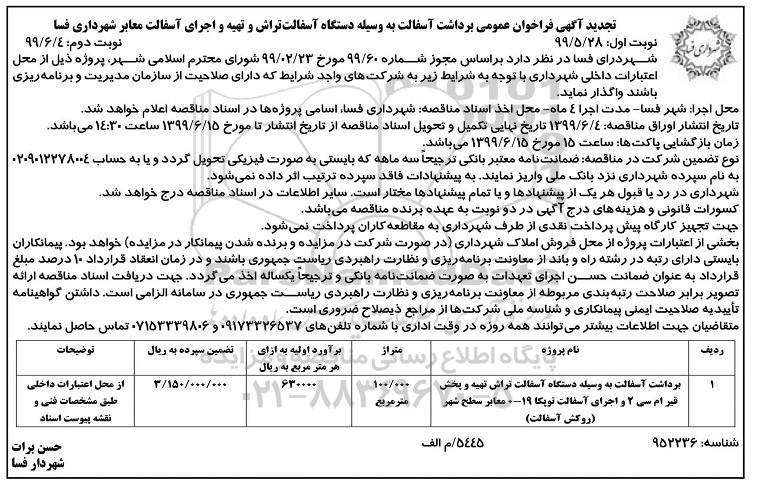 تجدید آگهی فراخوان عمومی برداشت آسفالت به وسیله دستگاه آسفالت‌تراش و تهیه و اجرای آسفالت معابر شهرداری فسا
نوبت اول: ۹۹/۵/۲۸ نوبت دوم: ۹۹/۶/۴
شهرداری فسا
شهردرای فسا در نظر دارد براساس مجوز شماره ۹۹/۶۰ مورخ ۹۹/۰۲/۲۳ شورای محترم اسلامی شهر، پروژه ذیل از محل
اعتبارات داخلی شهرداری با توجه به شرایط زیر به شرکت‌های واجد شرایط که دارای صلاحیت از سازمان مدیریت و برنامه‌ریزی
باشند واگذار نماید.
محل اجرا: شهر فسا– مدت اجرا ۴ ماه– محل اخذ اسناد مناقصه: شهرداری فسا، اسامی پروژه‌ها در اسناد مناقصه اعلام خواهد شد.
تاریخ انتشار اوراق مناقصه: ۱۳۹۹/۶/۴ تاریخ نهایی تکمیل و تحویل اسناد مناقصه از تاریخ انتشار تا مورخ ۱۳۹۹/۶/۱۵ ساعت ۱۴:۳۰ می‌باشد.
زمان بازگشایی پاکت‌ها: ساعت ۱۵ مورخ ۱۳۹۹/۶/۱۵ می‌باشد.
نوع تضمین شرکت در مناقصه: ضمانت‌نامه معتبر بانکی ترجیحاً سه ماهه که بایستی به صورت فیزیکی تحویل گردد و یا به حساب ۰۲۰۹۰۱۲۲۷۸۰۰۴
به نام سپرده شهرداری نزد بانک ملی واریز نمایند. به پیشنهادات فاقد سپرده ترتیب اثر داده نمی‌شود.
شهرداری در رد یا قبول هر یک از پیشنهادها و یا تمام پیشنهادها مختار است. سایر اطلاعات در اسناد مناقصه درج خواهد شد.
کسورات قانونی و هزینه‌های درج آگهی در دو نوبت به عهده برنده مناقصه می‌باشد.
جهت تجهیز کارگاه پیش پرداخت نقدی از طرف شهرداری به مقاطعه‌کاران پرداخت نمی‌شود.
بخشی از اعتبارات پروژه از محل فروش املاک شهرداری (در صورت شرکت در مزایده و برنده شدن پیمانکار در مزایده) خواهد بود. پیمانکاران
بایستی دارای رتبه در رشته راه و باند از معاونت برنامه‌ریزی و نظارت راهبردی ریاست جمهوری باشند و در زمان انعقاد قرارداد ۱۰ درصد مبلغ
قرارداد به عنوان ضمانت حسن اجرای تعهدات به صورت ضمانت‌نامه بانکی و ترجیحاً یکساله اخذ می‌گردد. جهت دریافت اسناد مناقصه ارائه
تصویر برابر صلاحت رتبه‌بندی مربوطه از معاونت برنامه‌ریزی و نظارت راهبردی ریاست جمهوری در سامانه الزامی است. داشتن گواهینامه
تأییدیه صلاحیت ایمنی پیمانکاری و شناسه ملی شرکت‌ها از مراجع ذیصلاح ضروری است.
متقاضیان جهت اطلاعات بیشتر می‌توانند همه روزه در وقت اداری با شماره تلفن‌های ۰۹۱۷۳۳۳۶۵۳۷ و ۰۷۱۵۳۳۳۹۸۰۶ تماس حاصل نمایند.
ردیف نام پروژه متراژ برآورد اولیه به ازای هر متر مربع به ریال تضمین سپرده به ریال توضیحات
۱ برداشت آسفالت به وسیله دستگاه آسفالت تراش تهیه و پخش ۱۰۰/۰۰۰ ۶۳۰۰۰۰ ۳/۱۵۰/۰۰۰/۰۰۰ از محل اعتبارات داخلی
قیر ام سی ۲ و اجرای آسفالت توپکا ۱۹–۰ معابر سطح شهر مترمربع طبق مشخصات فنی و
(روکش آسفالت) نقشه پیوست اسناد
شناسه: ۹۵۲۲۳۶ ۵۴۴۵/م الف حسن برات
شهردار فسا
پایگاه اطلاع رسانی مناقصه و مزایده